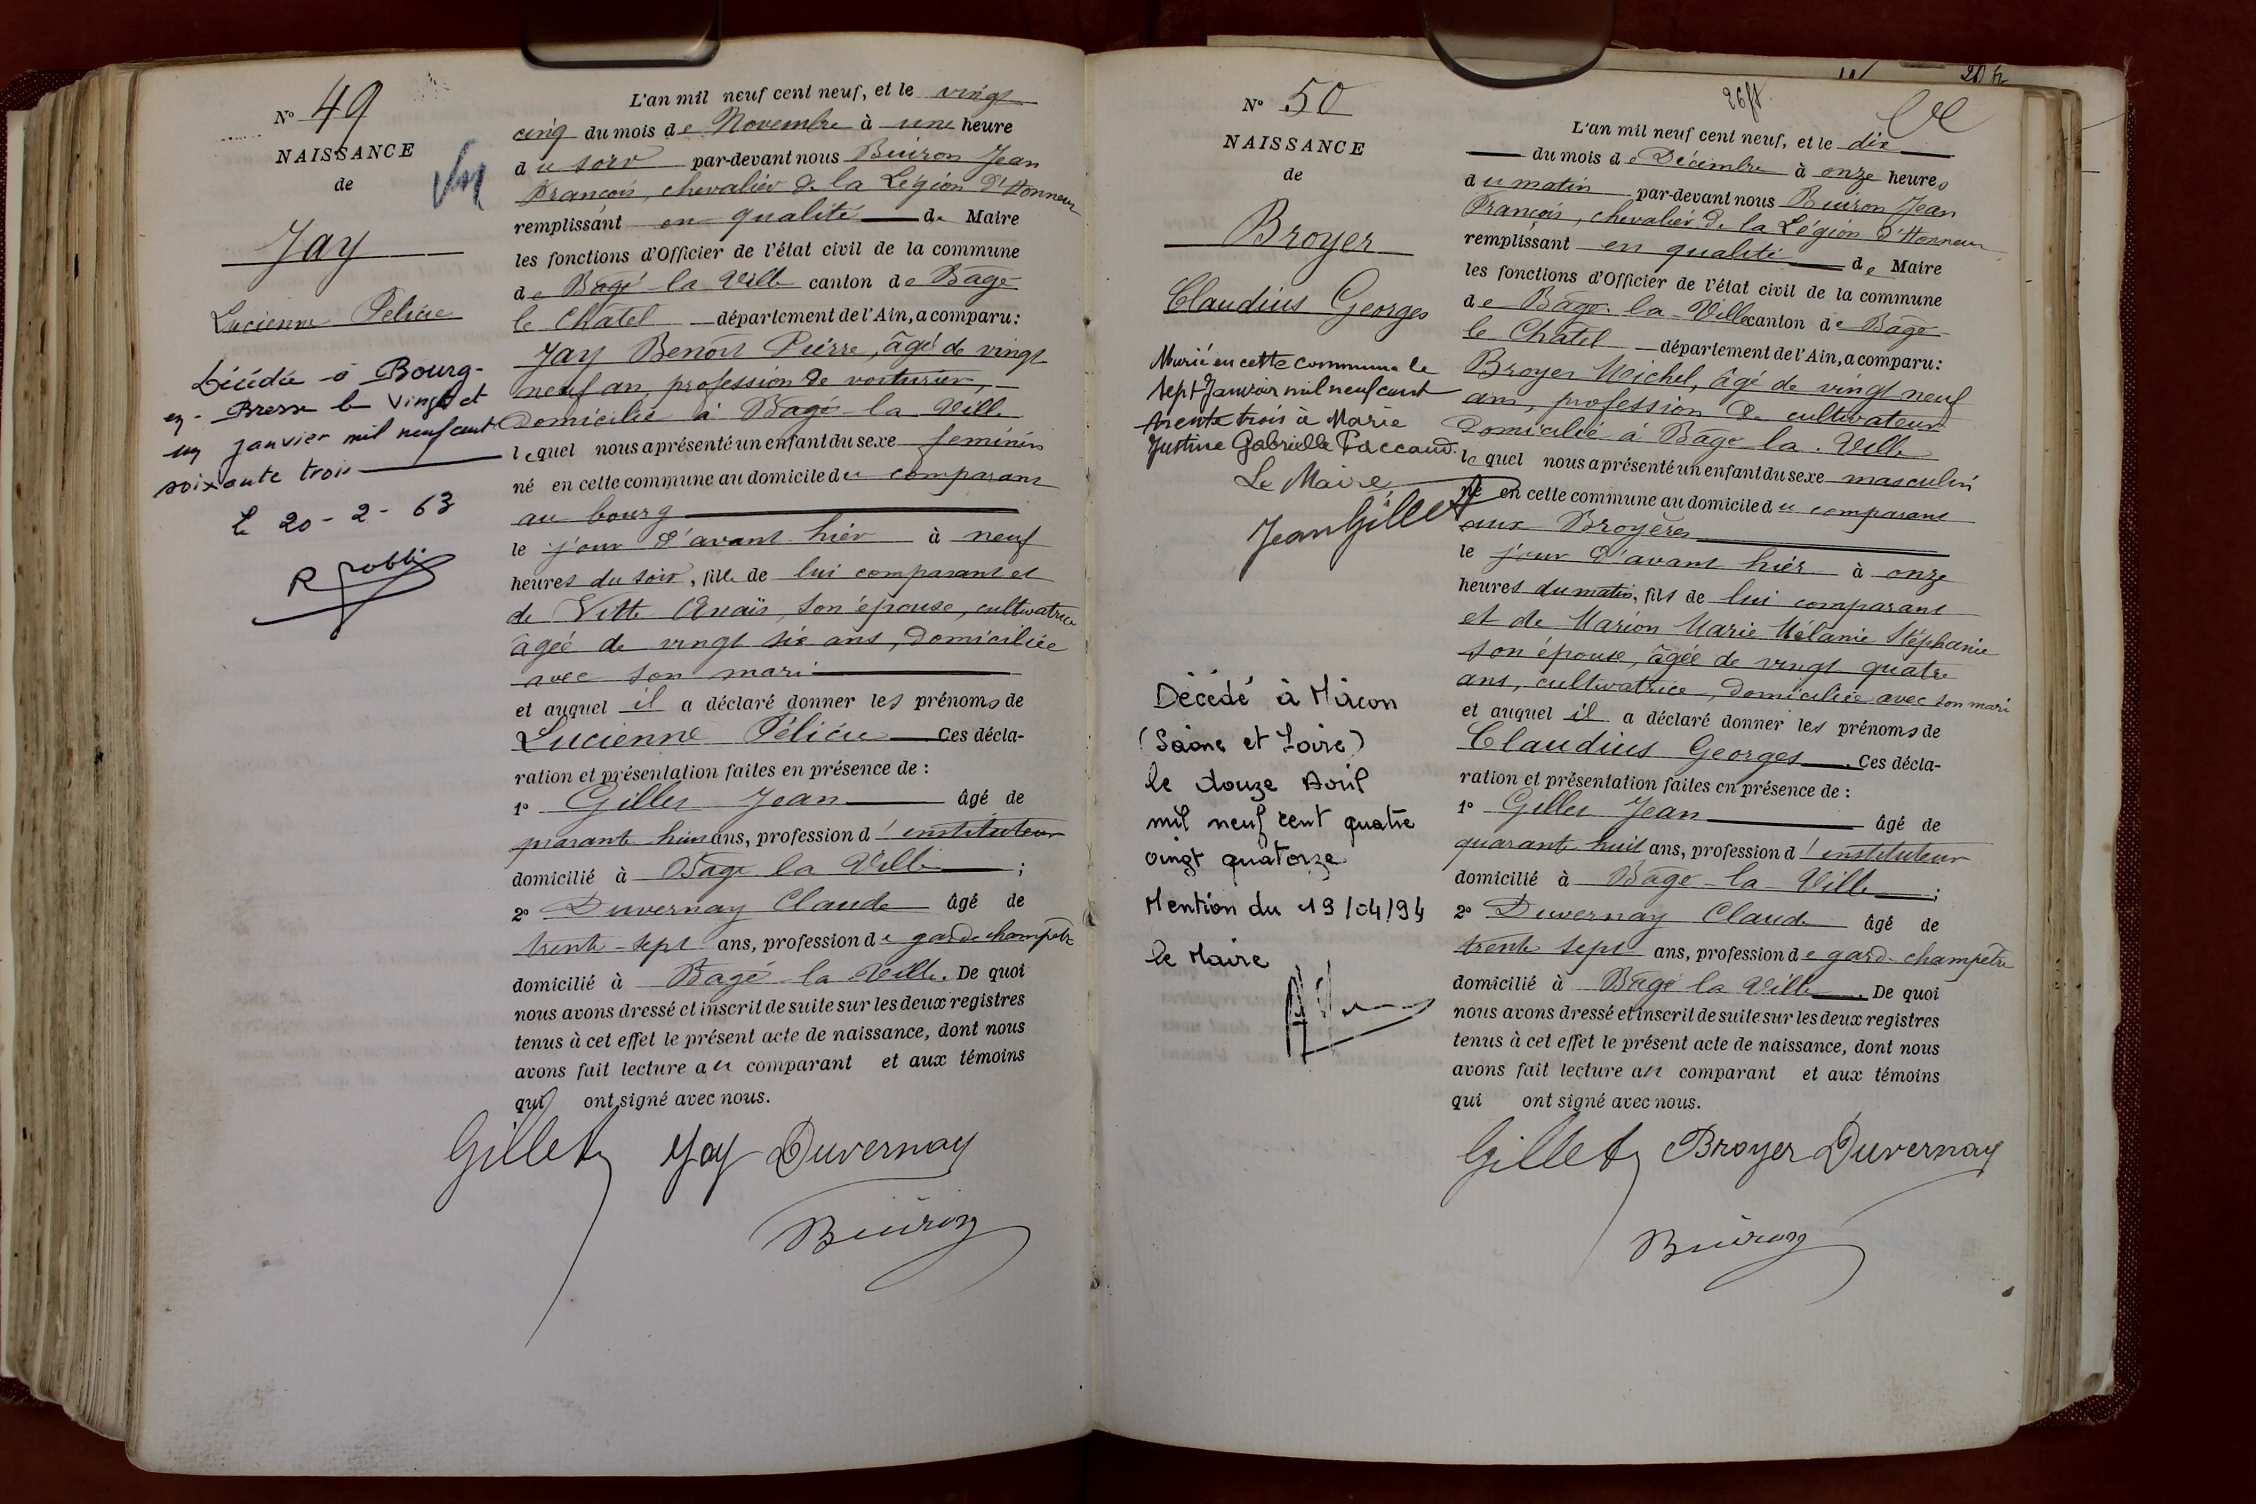 N° 49
NAISSANCE
de
Jay
Lucienne Félicie
Décédée à Bourg-
en-Bresse le vingt et
un janvier mil neuf cent
soixante trois
le 20-2-63
L'an mil neuf cent neuf, et le vingt
cinq du mois de Novembre à une heure
du soir par-devant nous Buiron Jean
François, chevalier de la Légion d'Honneur
remplissant en qualité de Maire
les fonctions d'Officier de l'état civil de la commune
de Bagé la Ville canton de Bagé
le Châtel département de l'Ain, a comparu:
Jay Benoit Pierre, âgé de vingt
neuf an, profession de voiturier,
domicilié à Bagé-la Ville
lequel nous a présenté un enfant du sexe féminin
né en cette commune au domicile du comparant
au bourg
le jour d'avant hier à neuf
heures du soir, fille de lui comparant et
de Vitte Anaïs, son épouse, cultivatrice
âgée de vingt six ans, domiciliée
avec son mari
et auquel il a déclaré donner les prénoms de
Lucienne Félicie Ces décla-
ration et présentation faites en présence de :
1° Gillet Jean âgé de
quarante huit ans, profession d'instituteur
domicilié à Bagé la Ville ;
2° Duvernay Claude âgé de
trente-sept ans, profession de garde champêtre
domicilié à Bagé la Ville. De quoi
nous avons dressé et inscrit de suite sur les deux registres
tenus à cet effet le présent acte de naissance, dont nous
avons fait lecture au comparant et aux témoins
qui ont signé avec nous.
Gillet Jay Duvernay
Buiron
N° 50
NAISSANCE
de
Broyer
Claudius Georges
Marié en cette commune le
sept Janvier mil neuf cent
trente trois à Marie
Justine Gabrielle Paccaud.
Le Maire,
Jean Gillet
Décédé à Mâcon
(Saône et Loire)
le douze Avril
mil neuf cent quatre
vingt quatorze
Mention du 19/04/94
le Maire
L'an mil neuf cent neuf, et le dix
du mois de Décembre à onze heures
du matin par-devant nous Buiron Jean
François, chevalier de la Légion d'Honneur
remplissant en qualité de Maire
les fonctions d'Officier de l'état civil de la commune
de Bagé-la-Ville canton de Bagé
le Châtel département de l'Ain, a comparu:
Broyer Michel, âgé de vingt neuf
ans, profession de cultivateur
domicilié à Bagé la Ville
lequel nous a présenté un enfant du sexe masculin
né en cette commune au domicile du comparant
aux Broyères
le jour d'avant hier à onze
heures du matin, fils de lui comparant
et de Marion Marie Mélanie Stéphanie
son épouse, âgée de vingt quatre
ans, cultivatrice, domiciliée avec son mari
et auquel il a déclaré donner les prénoms de
Claudius Georges. Ces décla-
ration et présentation faites en présence de :
1° Gillet Jean âgé de
quarante huit ans, profession d'instituteur
domicilié à Bagé-la-Ville ;
2° Duvernay Claude âgé de
trente sept ans, profession de garde champêtre
domicilié à Bagé la Ville. De quoi
nous avons dressé et inscrit de suite sur les deux registres
tenus à cet effet le présent acte de naissance, dont nous
avons fait lecture au comparant et aux témoins
qui ont signé avec nous.
Gillet Broyer Duvernay
Buiron